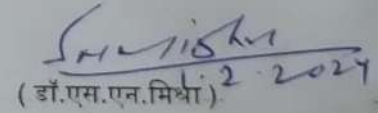 1.2.2024
(डॉ.एस.एन.मिश्रा)